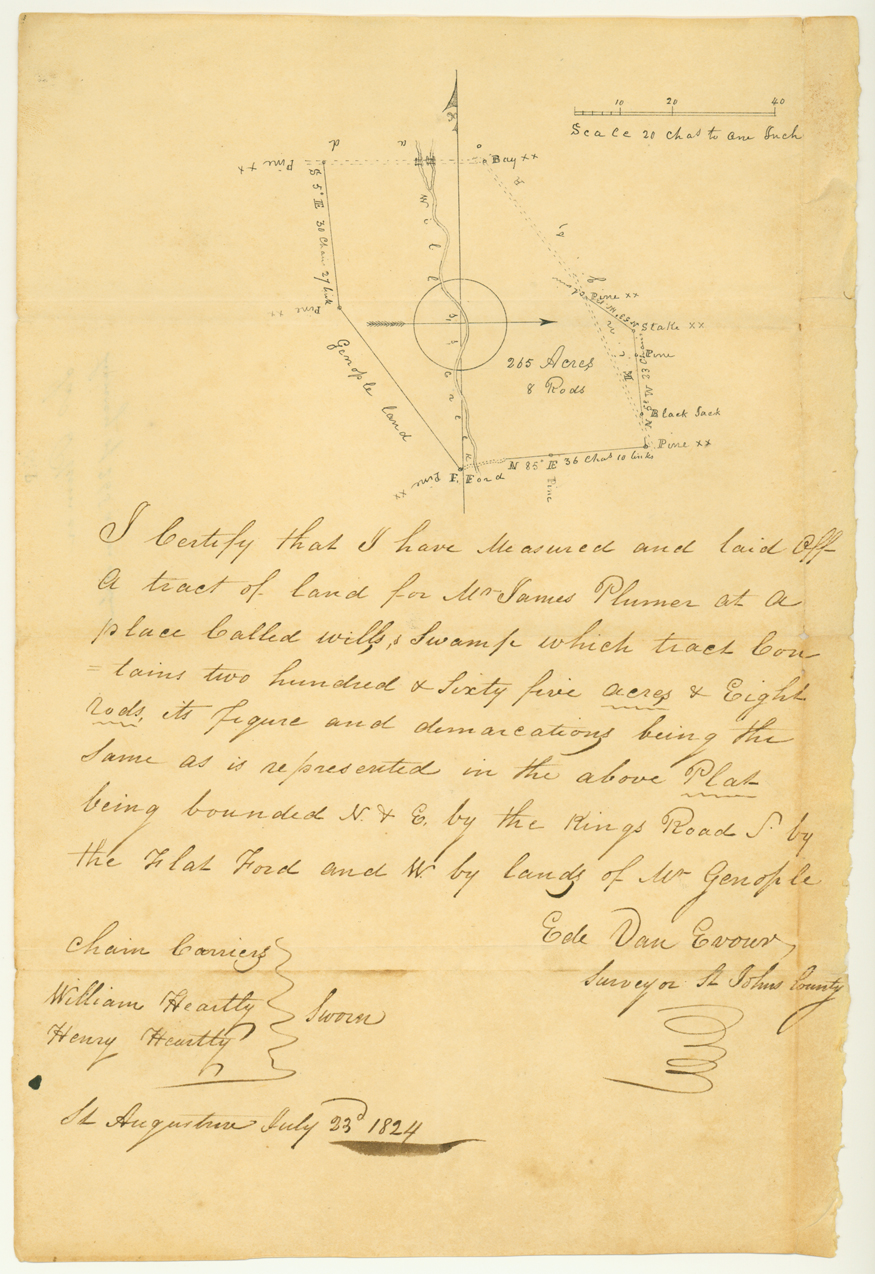 10 20 40
Scale 20 Chas to One Inch
Pine xx
Bay xx
S 5° E 30 Chan 27 link
Pine xx
Genople land
Wills Creek
265 Acres
8 Rods
Pine xx
Stake xx
Pine
Black Jack
Pine xx
N 85° E 36 Chas 10 links
Pine
F. Ford
Pine xx
I Certify that I have Measured and laid Off
A tract of land for Mr James Plumer at A
place Called wills,s Swamp which tract Con
= tains two hundred & Sixty five acres & Eight
Rods, its figure and demarcations being the
Same as is represented in the above Plat
being bounded N. & E. by the Kings Road S. by
the Flat Ford and W. by lands of Mr Genople
Ede Van Evour
Surveyor St Johns County
Chain Carriers
William Heartly
Henry Heartly
Sworn
St Augustine July 23d 1824